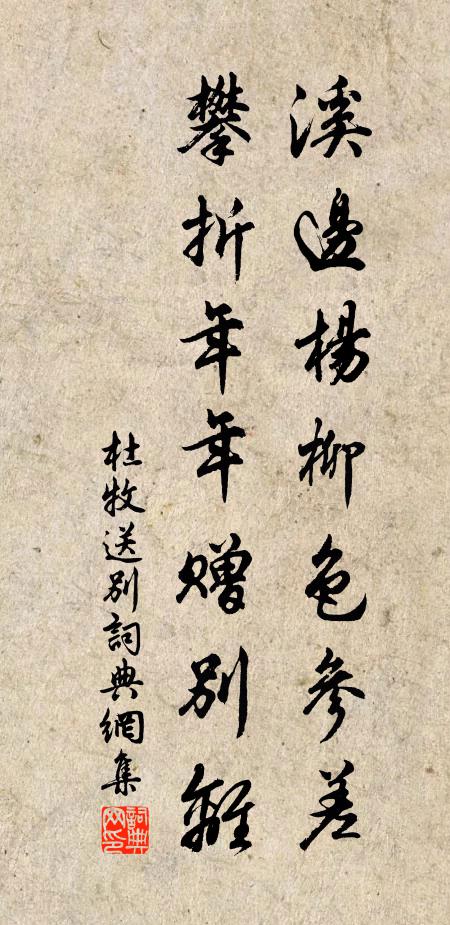 溪邊楊柳色參差
攀折年年贈別離
杜牧送別詞典網集
詞典網印